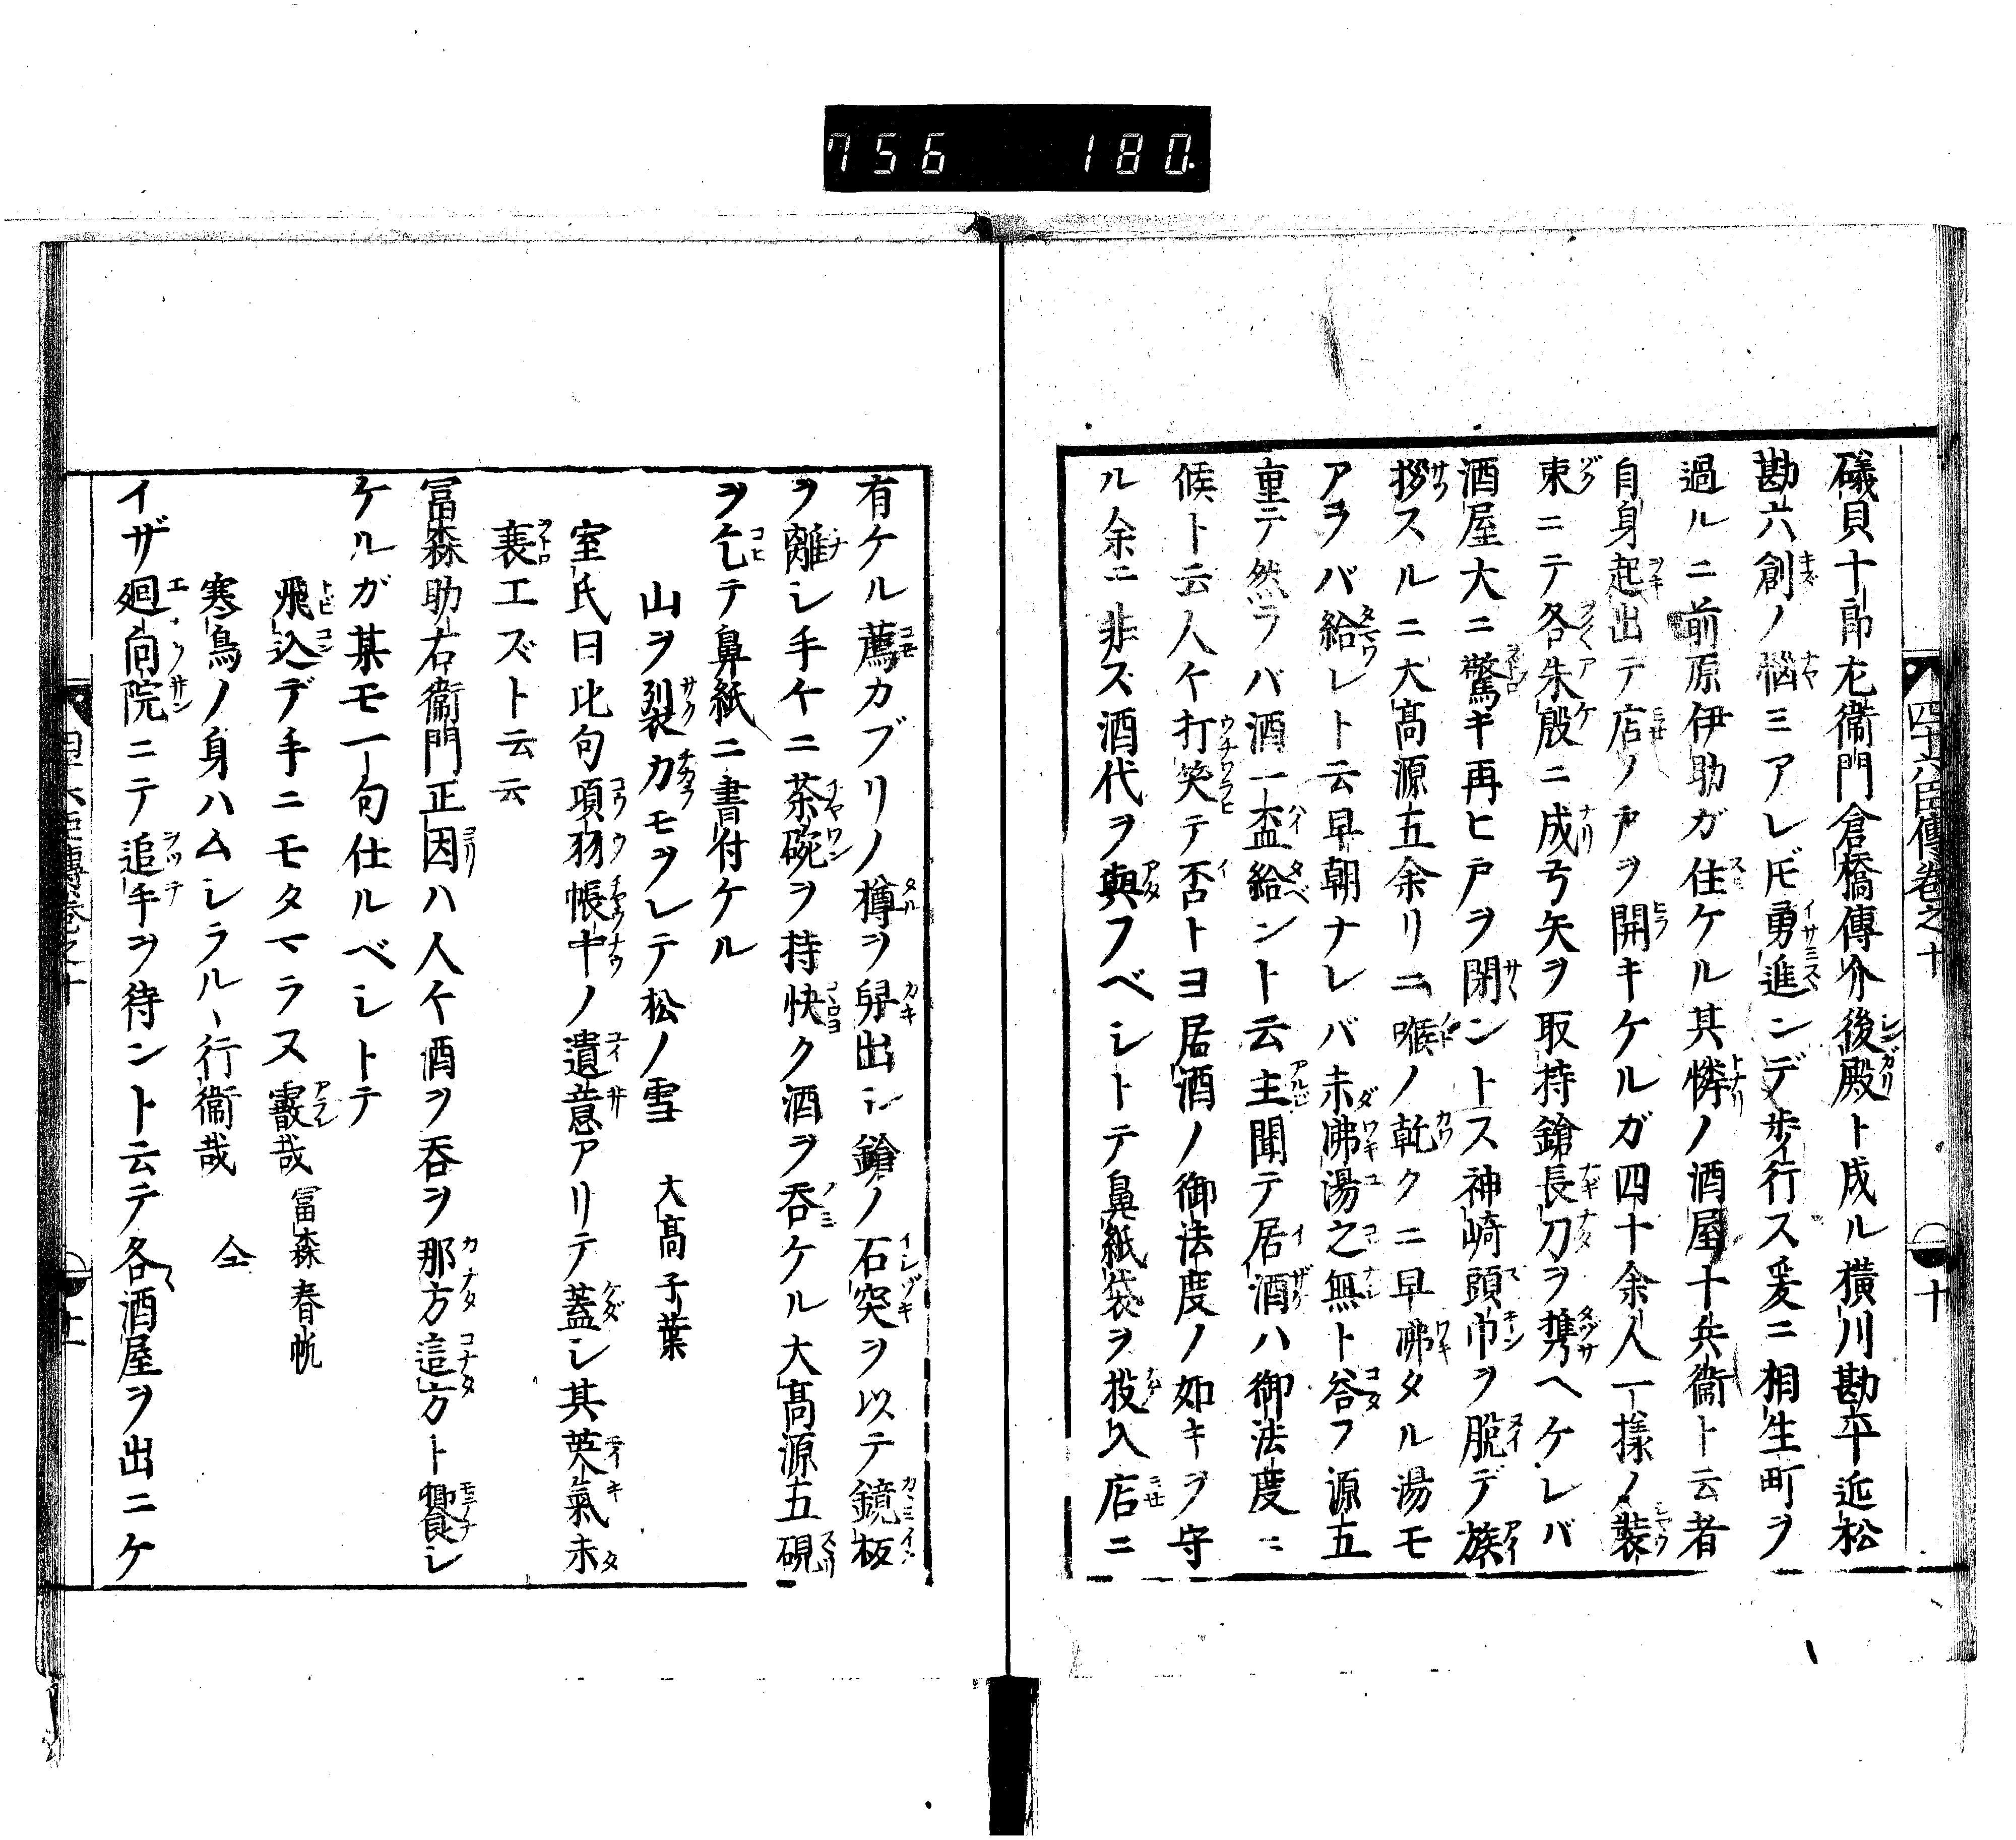 756 180.
礒貝十郎尤衞門倉橋傳介後殿ト成ル横川勘平近松
勘六創ノ悩ミアレ𪜈勇進ンデ歩行ス爰ニ相生町ヲ
過ルニ前原伊助ガ住ケル其憐ノ酒屋十兵衞ト云者
自身起出テ店ノ戸ヲ開キケルガ四十余人一樣ノ裝
束ニテ各朱殷ニ成弓矢ヲ取持鎗長刀ヲ携ヘケレバ
酒屋大ニ驚キ再ヒ戸ヲ閉ントス神崎頭巾ヲ脫デ族
拶スルニ大高源五余リニ喉ノ乾クニ早沸タル湯モ
アヲバ給レト云早朝ナレバ未沸湯之無ト答フ源五
重テ然ラバ酒一盃給ント云主聞テ居酒ハ御法度ニ
候ト云人々打笑テ否トヨ居酒ノ御法度ノ如キヲ守
ル余ニ非ズ酒代ヲ與フベシトテ鼻紙袋ヲ投入店ニ
四十六臣傳卷之十
十
有ケル薦カブリノ樽ヲ舁出シ鎗ノ石突ヲ以テ鏡板
ヲ離レ手々ニ茶碗ヲ持快ク酒ヲ呑ケル大高源五硯
ヲ乞テ鼻紙ニ書付ケル
山ヲ裂カモヲレテ松ノ雪 大高子葉
室氏曰比句項羽帳中ノ遺意アリテ蓋シ其英氣未
衰エズト云云
冨森助右衞門正因ハ人々酒ヲ呑ヲ那方這方ト饗シ
ケルガ某モ一句仕ルベシトテ
飛込デ手ニモタマラヌ霰哉 冨森春帆
寒鳥ノ身ハムシラルヽ行衞哉 仝
イザ廻向院ニテ追手ヲ待ント云テ各酒屋ヲ出ニケ